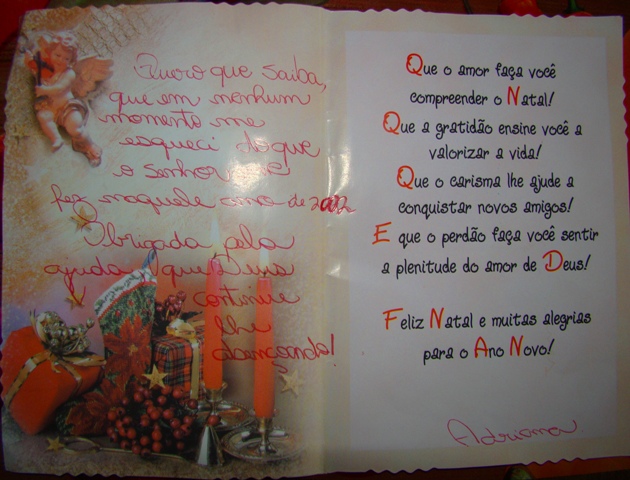 Quero que saiba,
que em nenhum
momento me
esqueci do que
o senhor me
fez naquele ano de 2002
Obrigada pela
ajuda, que Deus
continue
lhe
abençoando!
Que o amor faça você
compreender o Natal!
Que a gratidão ensine você a
valorizar a vida!
Que o carisma lhe ajude a
conquistar novos amigos!
E que o perdão faça você sentir
a plenitude do amor de Deus!
Feliz Natal e muitas alegrias
para o Ano Novo!
Adriana